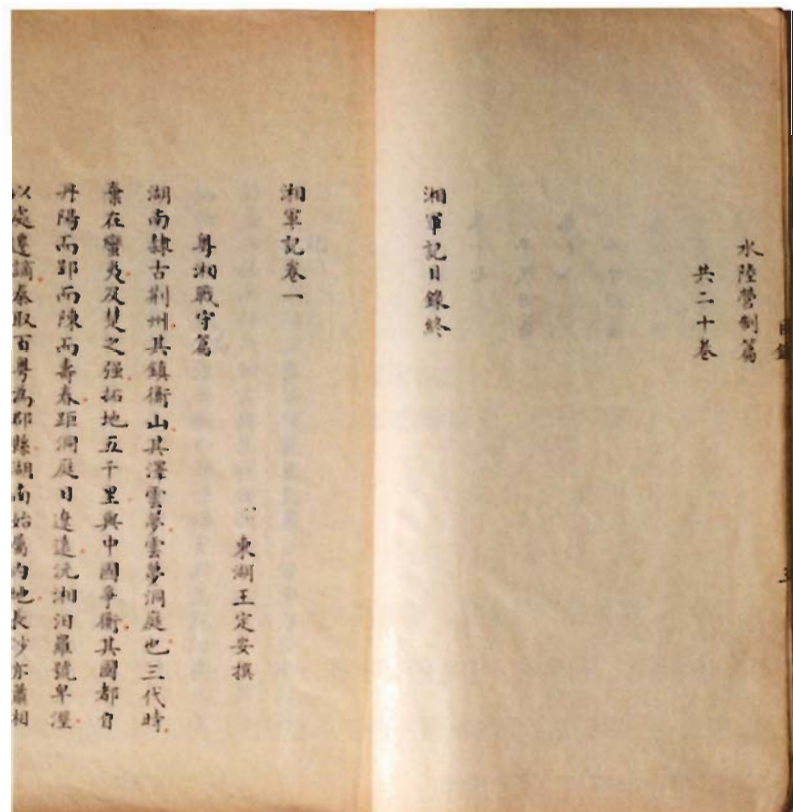 水陸營制篇
共二十卷
湘軍記目錄終
湘軍記卷一
東湖王定安撰
粵湘戰守篇
湖南隸古荆州其鎮衡山其澤雲夢雲夢洞庭也三代時
棄在蠻夷及楚之强拓地五千里與中國爭衡其國都自
丹陽而郢而陳而壽春距洞庭日遼遠沅湘汨羅號卑溼
以處遷謫秦取百粵為郡縣湖南始屬內地長沙亦蕭相